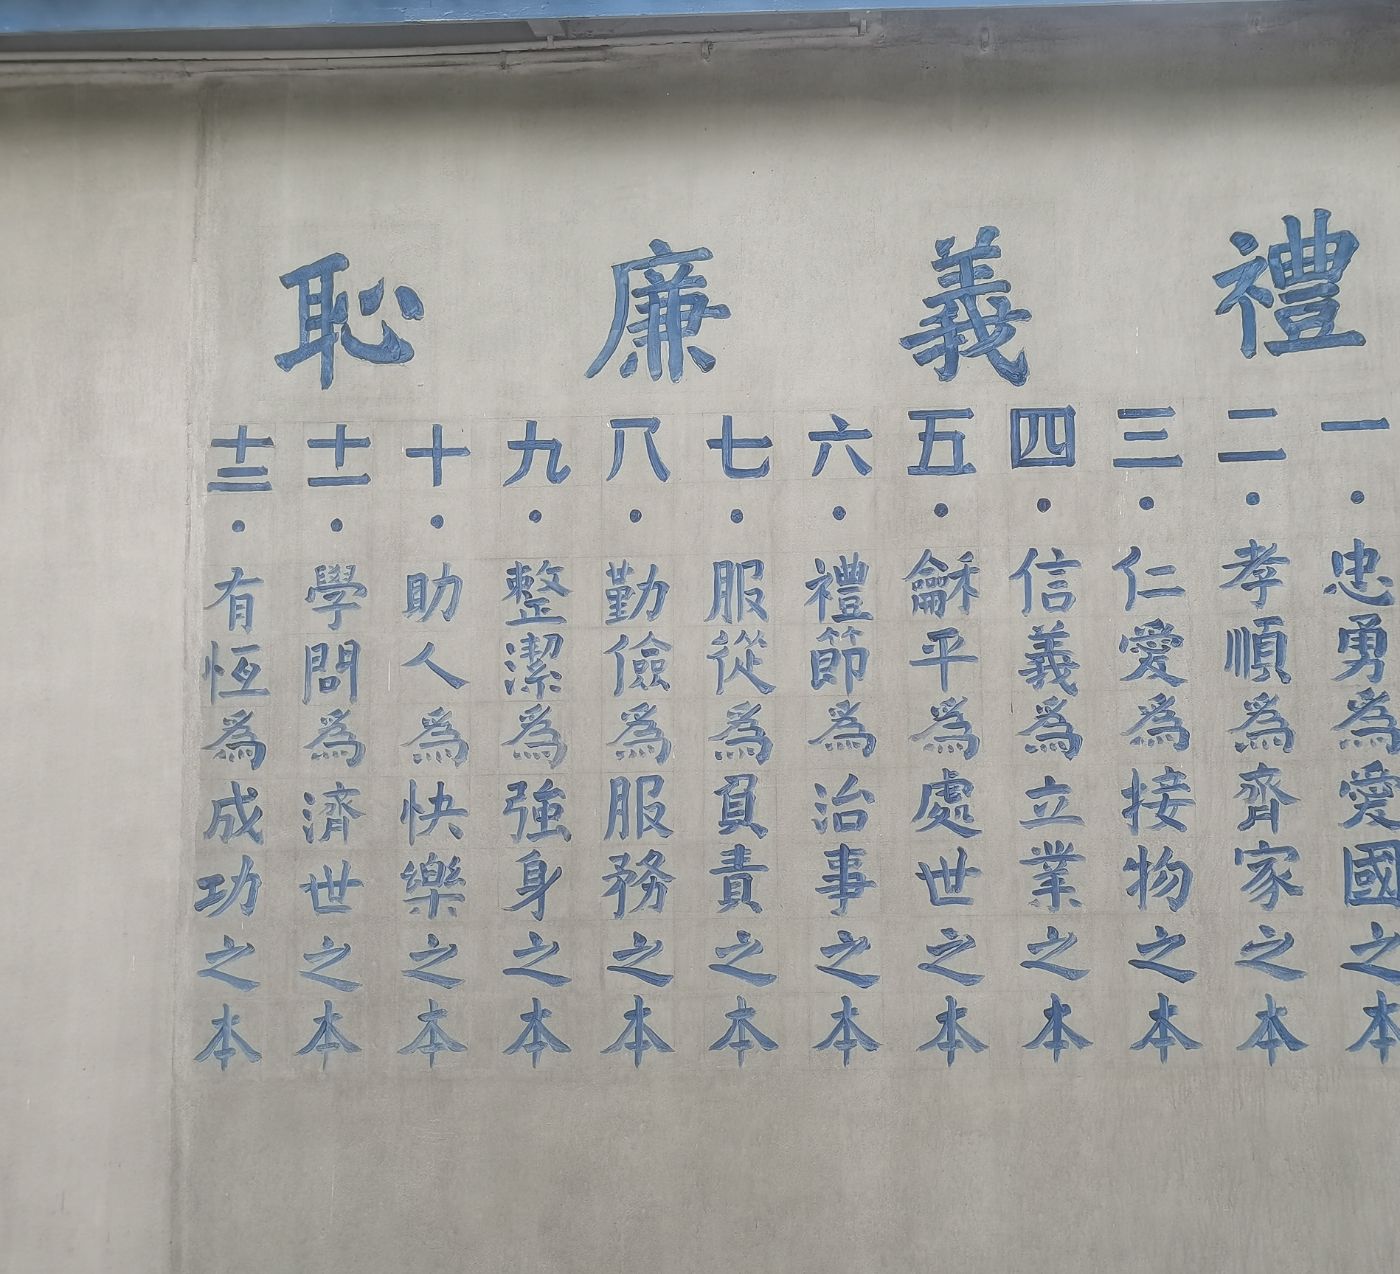 禮義廉恥
一·忠勇爲愛國之本
二·孝順爲齊家之本
三·仁愛爲接物之本
四·信義爲立業之本
五·龢平爲處世之本
六·禮節爲治事之本
七·服從爲負責之本
八·勤儉爲服務之本
九·整潔爲強身之本
十·助人爲快樂之本
十一·學問爲濟世之本
十二·有恆爲成功之本